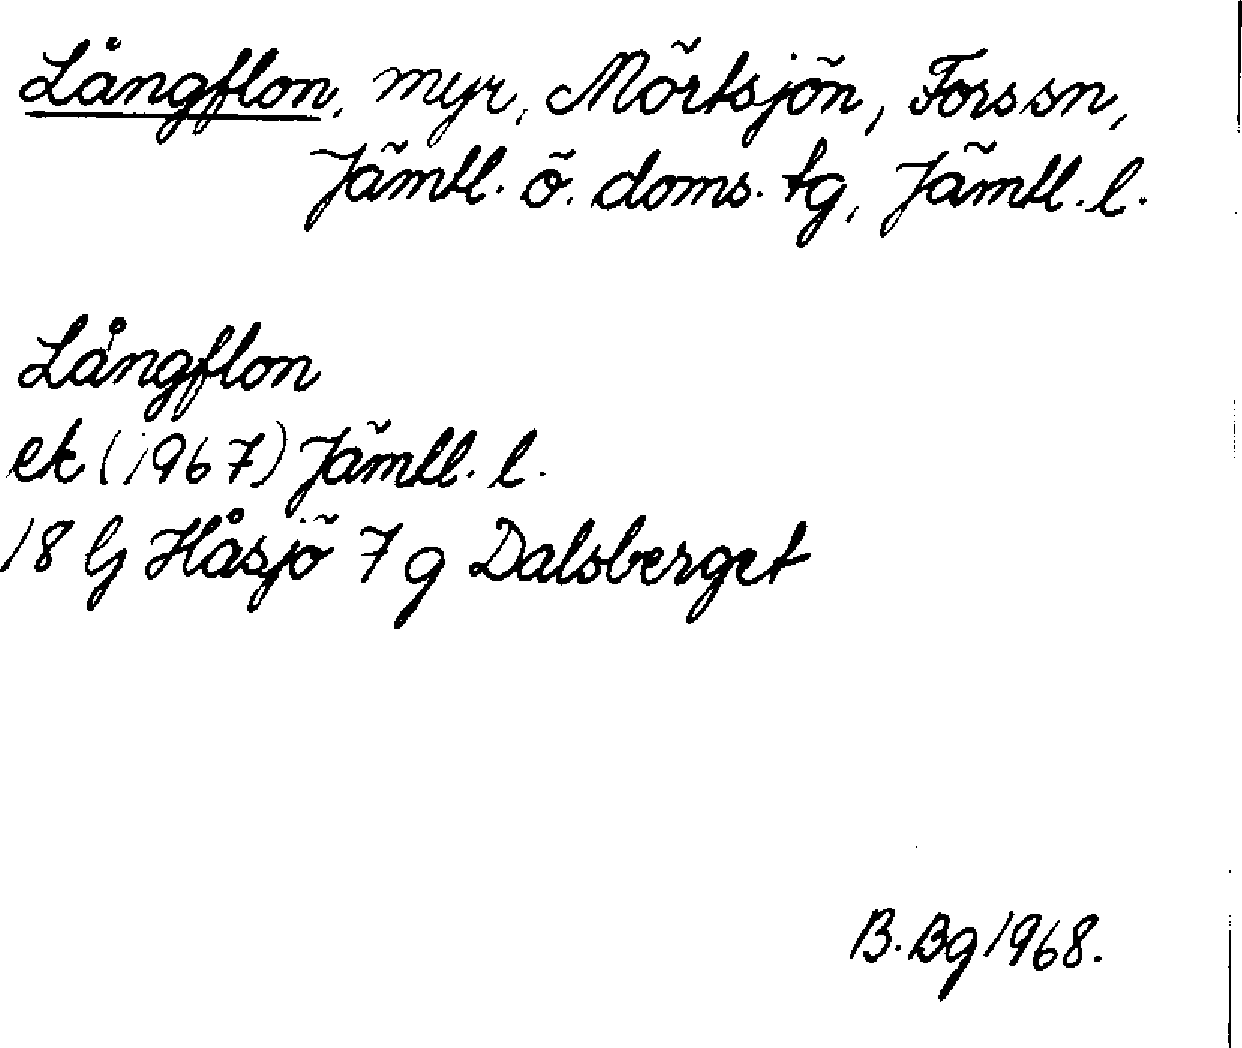 Långflon, myr, Mörtsjön, Forssn,
Jämtl. ö. doms. tg, Jämtl. l.
Långflon
ek (1967) Jämtl. l.
18 G Håsjö 7 g Dalsberget
B. Bg 1968.